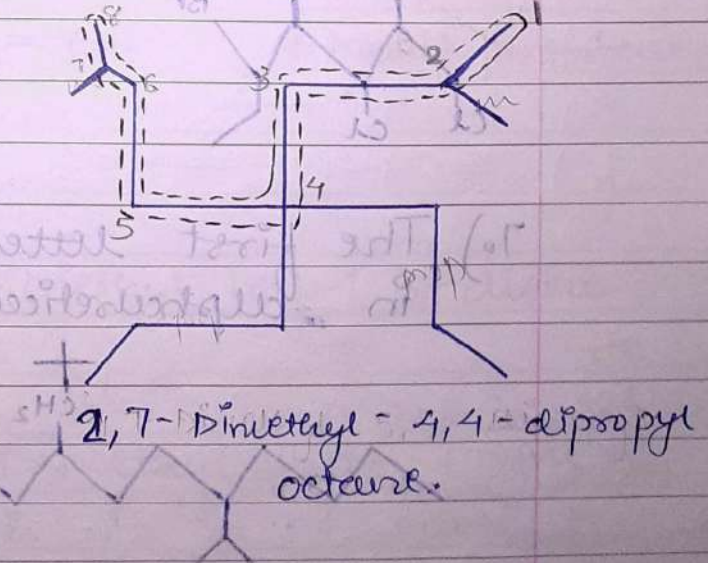 8 1
7 6 3 2
m
4
5
prop
2,7-Dimethyl-4,4-dipropyl
octane.